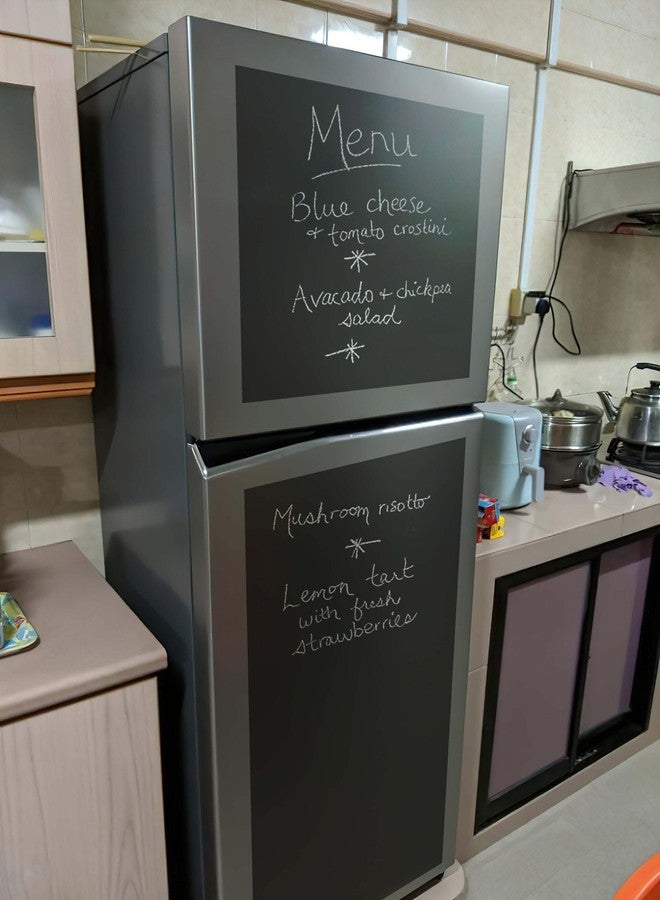 Menu
Blue cheese
+ tomato crostini
Avacado + chickpea
salad
Mushroom risotto
Lemon tart
with fresh
strawberries